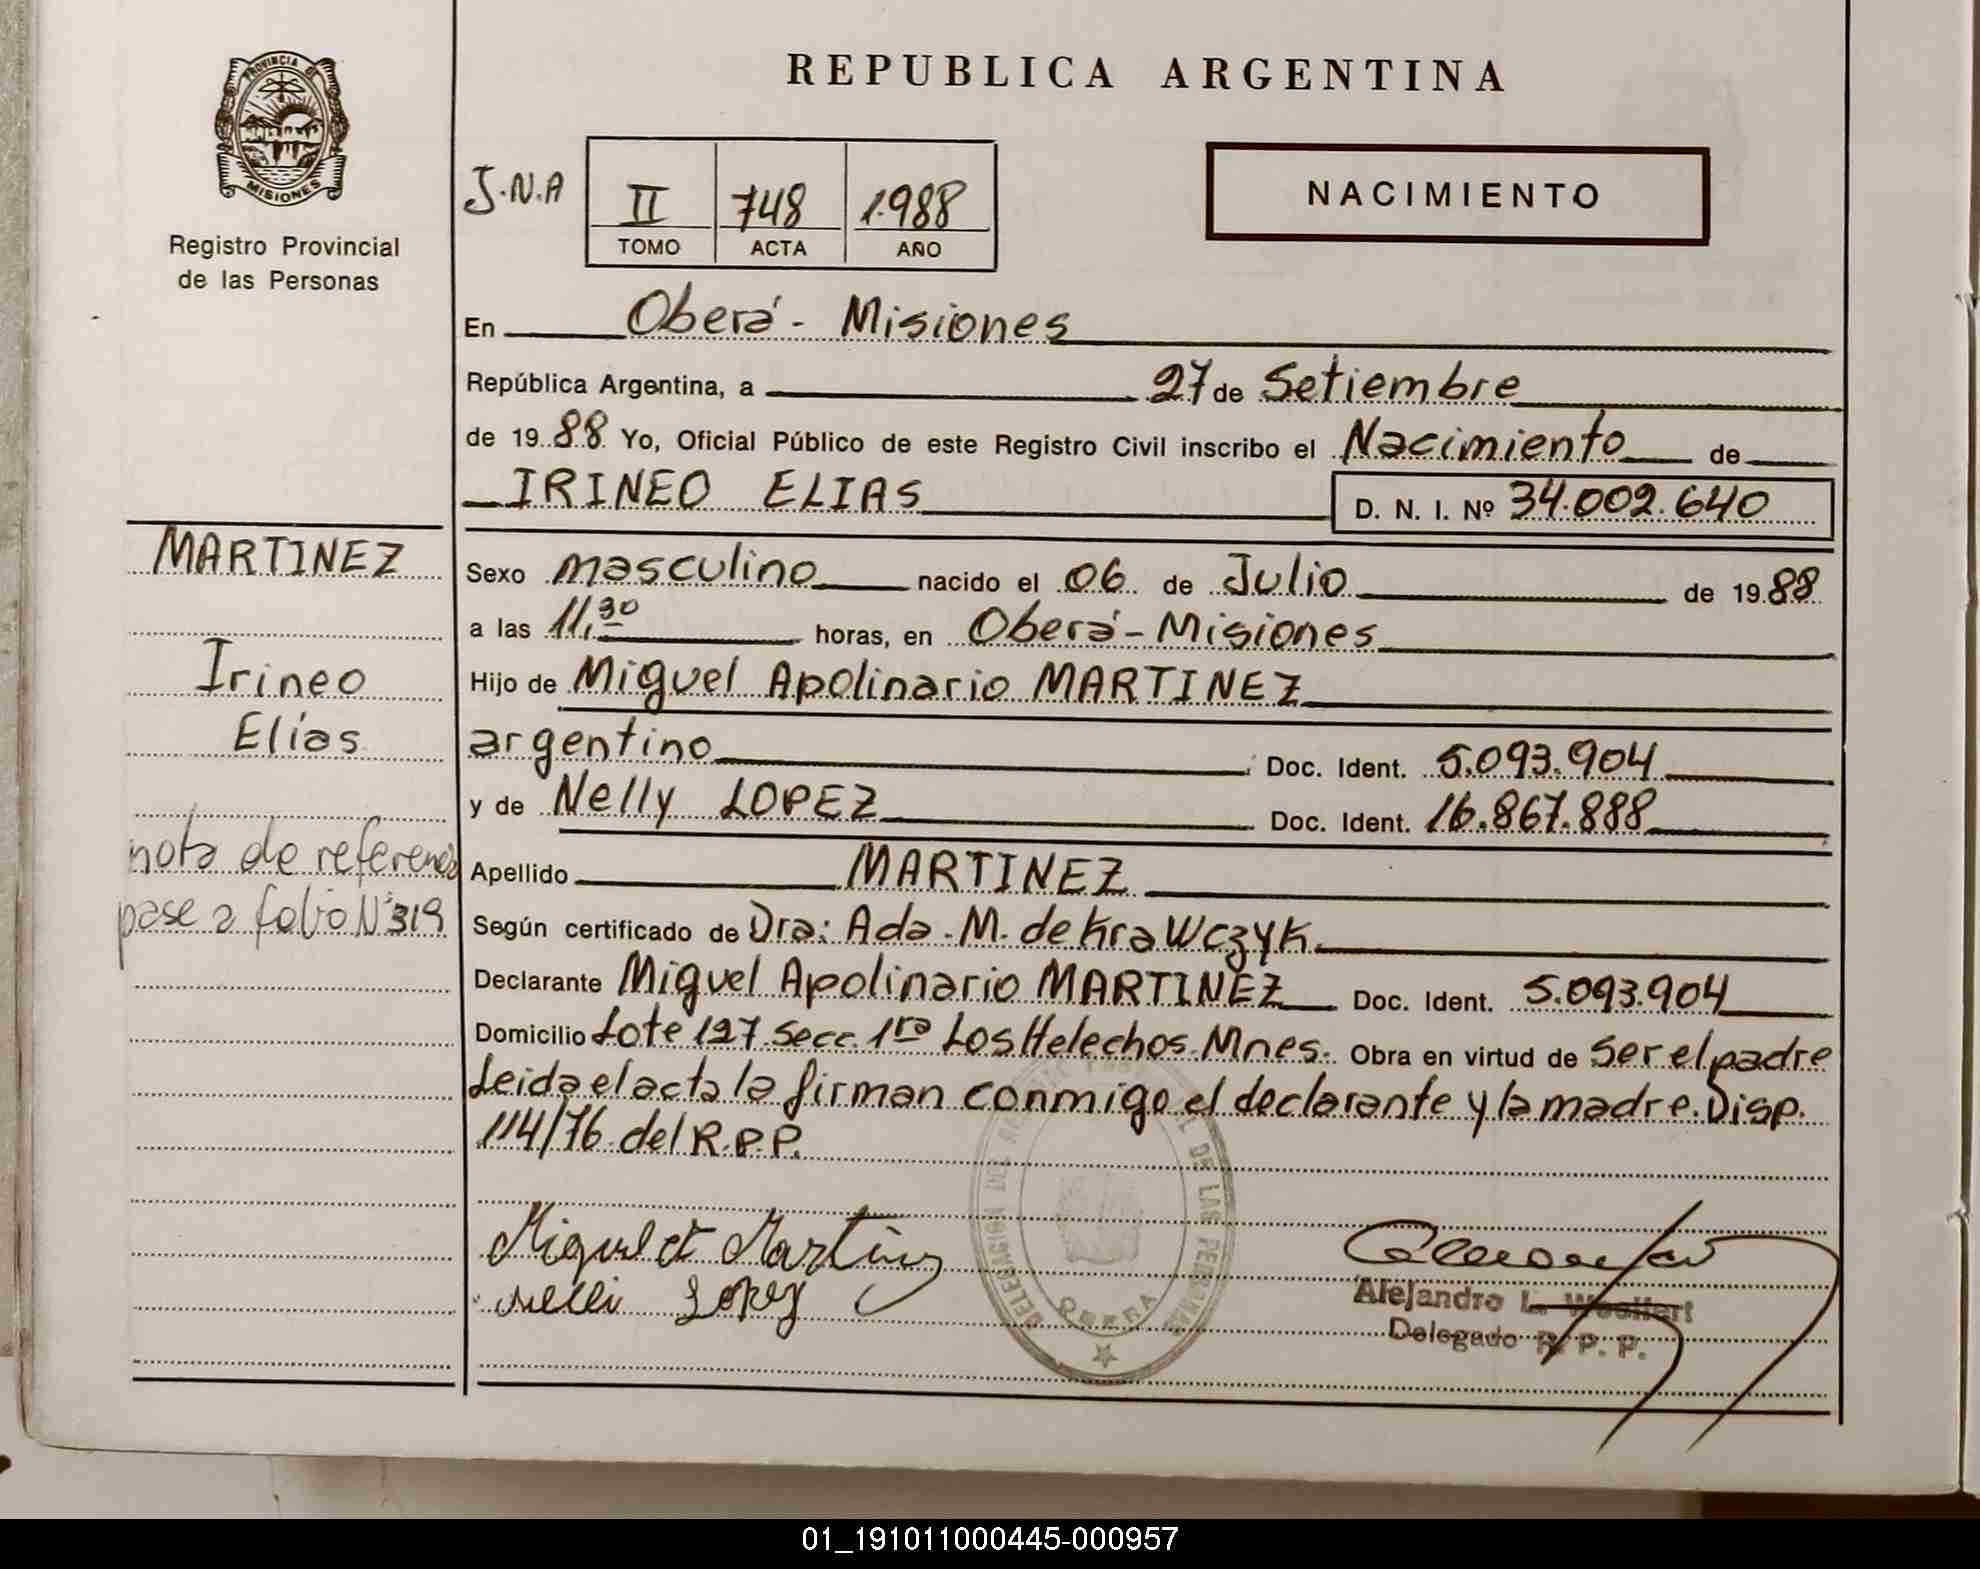 REPUBLICA ARGENTINA
PROVINCIA DE
MISIONES
Registro Provincial
de las Personas
J.N.A
II 748 1.988
TOMO ACTA AÑO
NACIMIENTO
En Oberá - Misiones
República Argentina, a 27 de Setiembre
de 19 88 Yo, Oficial Público de este Registro Civil inscribo el Nacimiento de
IRINEO ELIAS D. N. I. Nº 34.002.640
MARTINEZ
Irineo
Elías
nota de referencia
pase a folio Nº 319
Sexo masculino nacido el 06 de Julio de 19 88
a las 11,30 horas, en Oberá - Misiones
Hijo de Miguel Apolinario MARTINEZ
argentino Doc. Ident. 5.093.904
y de Nelly LOPEZ Doc. Ident. 16.867.888
Apellido MARTINEZ
Según certificado de Dra: Ada. M. de Krawczyk.
Declarante Miguel Apolinario MARTINEZ Doc. Ident. 5.093.904
Domicilio Lote 127 Secc. 1ra Los Helechos. Mnes. Obra en virtud de ser el padre
Leida el acta la firman conmigo el declarante y la madre. Disp.
114/76 del R.P.P.
Miguel A Martinez
Nelli Lopez
DELEGACION DEL DE LAS PERSONAS
OBERA
Alejandro L.
Delegado R. P. P.
01_191011000445-000957